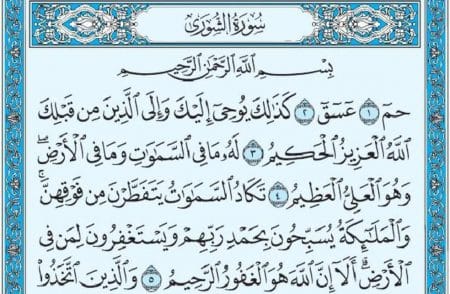 سُورَةُ الشُّورَىٰ
بِسْمِ اللَّهِ الرَّحْمَٰنِ الرَّحِيمِ
حمٓ ١ عٓسٓقٓ ٢ كَذَٰلِكَ يُوحِىٓ إِلَيْكَ وَإِلَى ٱلَّذِينَ مِن قَبْلِكَ
ٱللَّهُ ٱلْعَزِيزُ ٱلْحَكِيمُ ٣ لَهُۥ مَا فِى ٱلسَّمَٰوَٰتِ وَمَا فِى ٱلْأَرْضِۖ
وَهُوَ ٱلْعَلِىُّ ٱلْعَظِيمُ ٤ تَكَادُ ٱلسَّمَٰوَٰتُ يَتَفَطَّرْنَ مِن فَوْقِهِنَّۚ
وَٱلْمَلَٰٓئِكَةُ يُسَبِّحُونَ بِحَمْدِ رَبِّهِمْ وَيَسْتَغْفِرُونَ لِمَن فِى
ٱلْأَرْضِۗ أَلَآ إِنَّ ٱللَّهَ هُوَ ٱلْغَفُورُ ٱلرَّحِيمُ ٥ وَٱلَّذِينَ ٱتَّخَذُوا۟